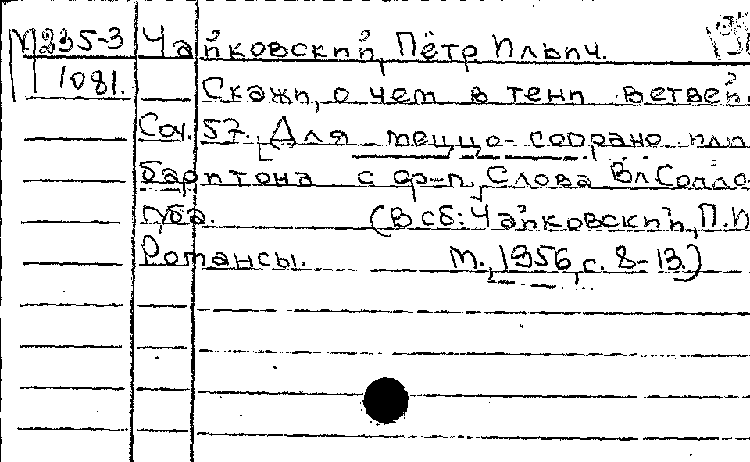 М235-3 Чайковский, Пётр Ильич.
1081. Скажи, о чем в тени ветвей.
Соч. 57. Для меццо-сопрано или
баритона с ф-п. Слова Вл Солло
губа. (В сб: Чайковский, П.И
Романсы. М., 1956, с. 8-13.)